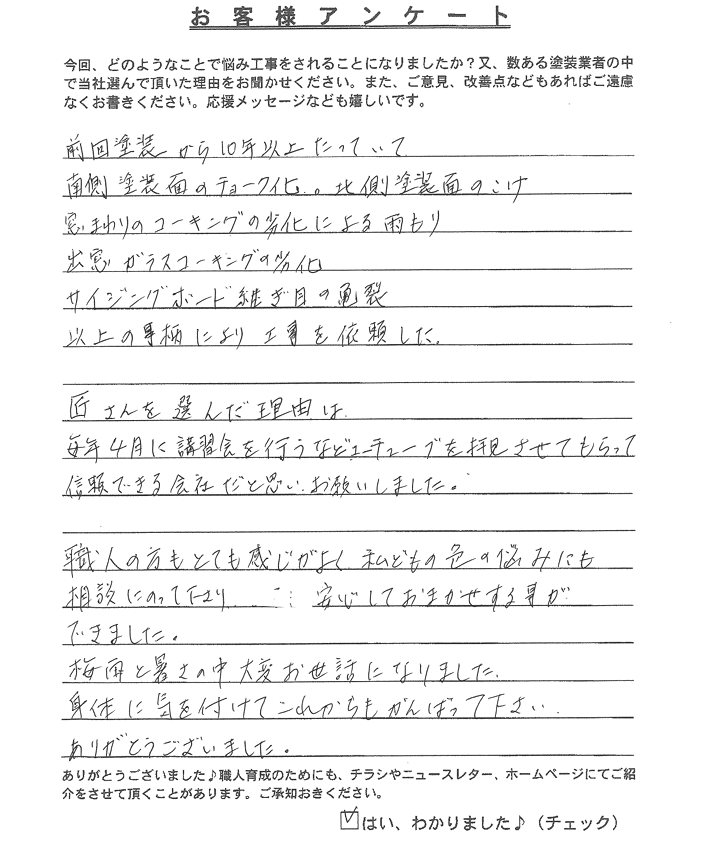 お客様アンケート
今回、どのようなことで悩み工事をされることになりましたか？又、数ある塗装業者の中
で当社選んで頂いた理由をお聞かせください。また、ご意見、改善点などもあればご遠慮
なくお書きください。応援メッセージなども嬉しいです。
前回塗装から10年以上たっていて
南側塗装面のチョーク化。北側塗装面のこけ
窓まわりのコーキングの劣化による雨もり
出窓ガラスコーキングの劣化
サイジングボード継ぎ目の亀裂
以上の事柄により工事を依頼した.
匠さんを選んだ理由は
毎年4月に講習会を行うなどユーチューブを拝見させてもらって
信頼できる会社だと思い、お願いしました。
職人の方もとても感じがよく私どもの色の悩みにも
相談にのって下さり 安心しておまかせする事が
できました。
梅雨と暑さの中大変お世話になりました.
身体に気を付けてこれからもがんばって下さい.
ありがとうございました。
ありがとうございました♪職人育成のためにも、チラシやニュースレター、ホームページにてご紹
介をさせて頂くことがあります。ご承知おきください。
☑はい、わかりました♪（チェック）